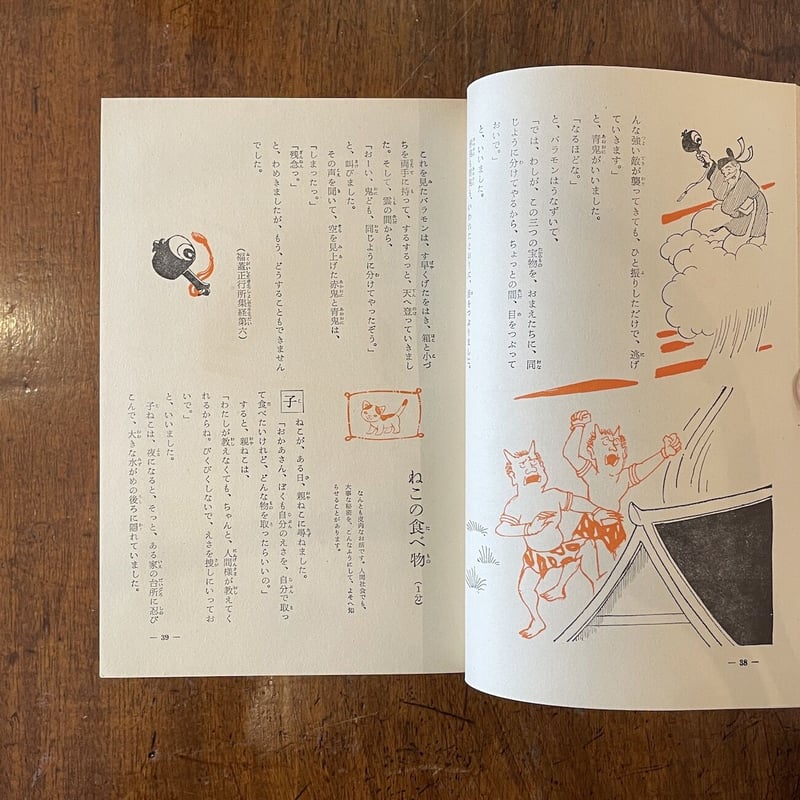 んな強い敵が襲ってきても、ひと振りしただけで、逃げ
ていきます。」
と、青鬼がいいました。
「なるほどな。」
と、バラモンはうなずいて、
「では、わしが、この三つの宝物を、おまえたちに、同
じように分けてやるから、ちょっとの間、目をつぶって
おいで。」
と、いいました。
— 38 —
これを見たバラモンは、す早くげたをはき、箱と小づ
ちを両手に持って、するするっと、天へ登っていきまし
た。そして、雲の間から、
「おーい、鬼ども、同じように分けてやったぞう。」
と、叫びました。
その声を聞いて、空を見上げた赤鬼と青鬼は、
「しまったっ。」
「残念っ。」
と、わめきましたが、もう、どうすることもできません
でした。
（福蓋正行所集経第六）
ねこの食べ物（1分）
なんとも皮肉なお話です。人間社会でも、
大事な秘密を、こんなようにして、よそへ知
らせることがあります。
子ねこが、ある日、親ねこに尋ねました。
「おかあさん、ぼくも自分のえさを、自分で取っ
て食べたいけれど、どんな物を取ったらいいの。」
すると、親ねこは、
「わたしが教えなくても、ちゃんと、人間様が教えてく
れるからね。びくびくしないで、えさを捜しにいってお
いで。」
と、いいました。
子ねこは、夜になると、そっと、ある家の台所に忍び
こんで、大きな水がめの後ろに隠れていました。
— 39 —